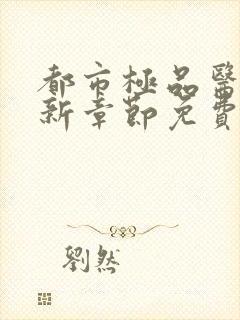 都市極品醫
新章節免費
劉然